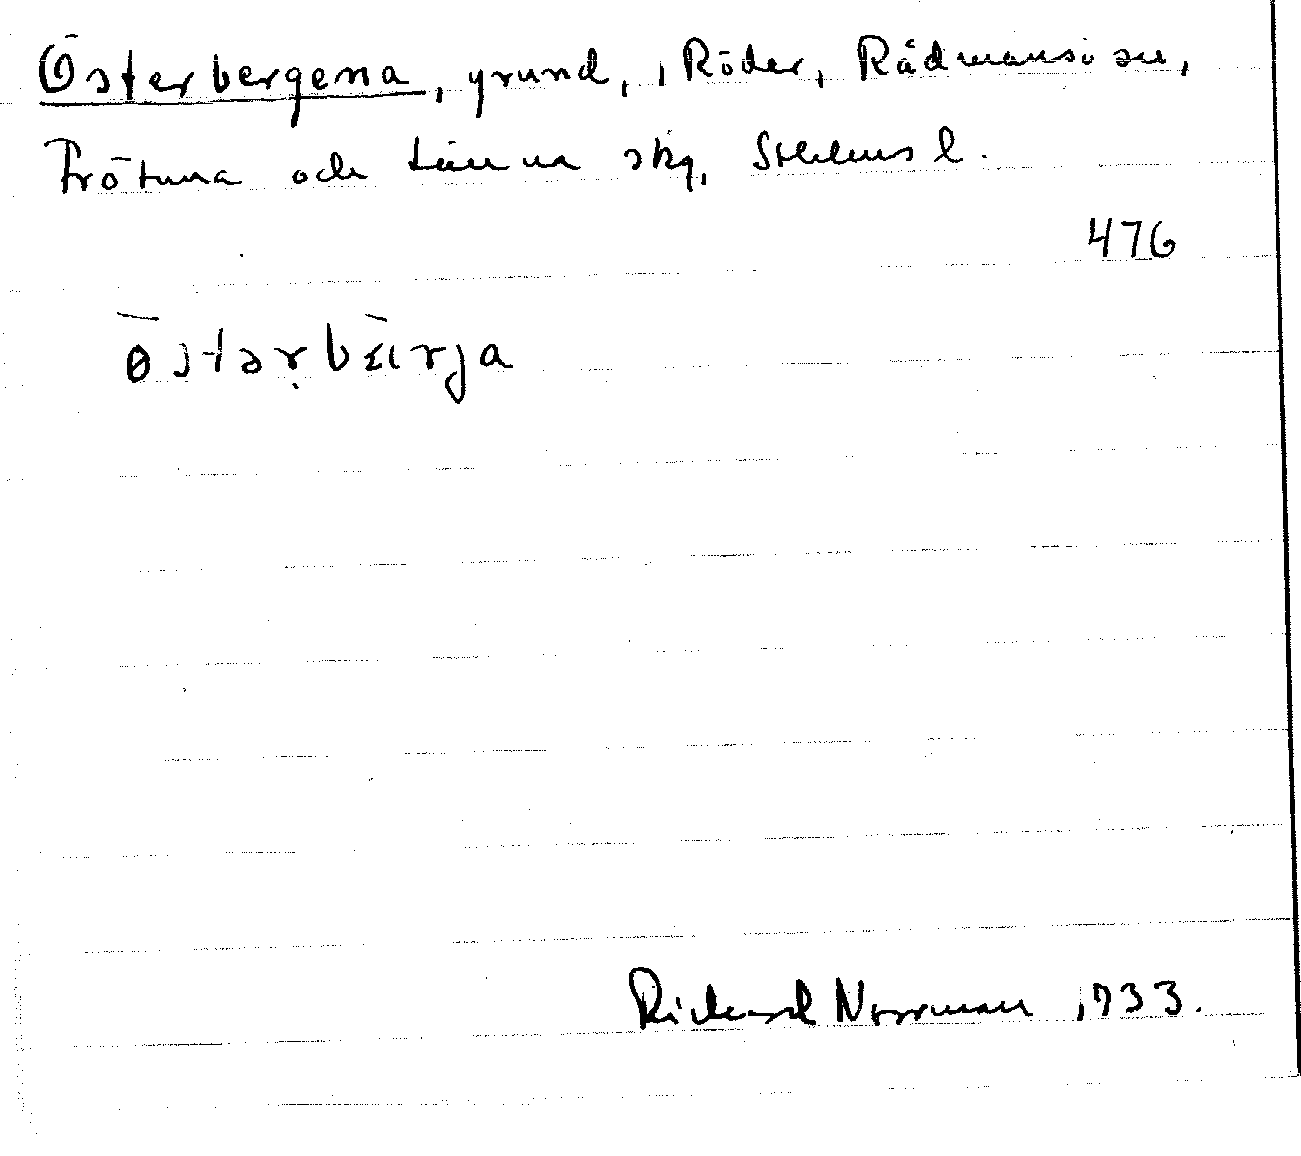 Österbergena, grund, i Röder, Rådmansö sn,
Frötuna och Länna skg, Sthlms l.
476
östərbärja
Richard Norrman 1933.